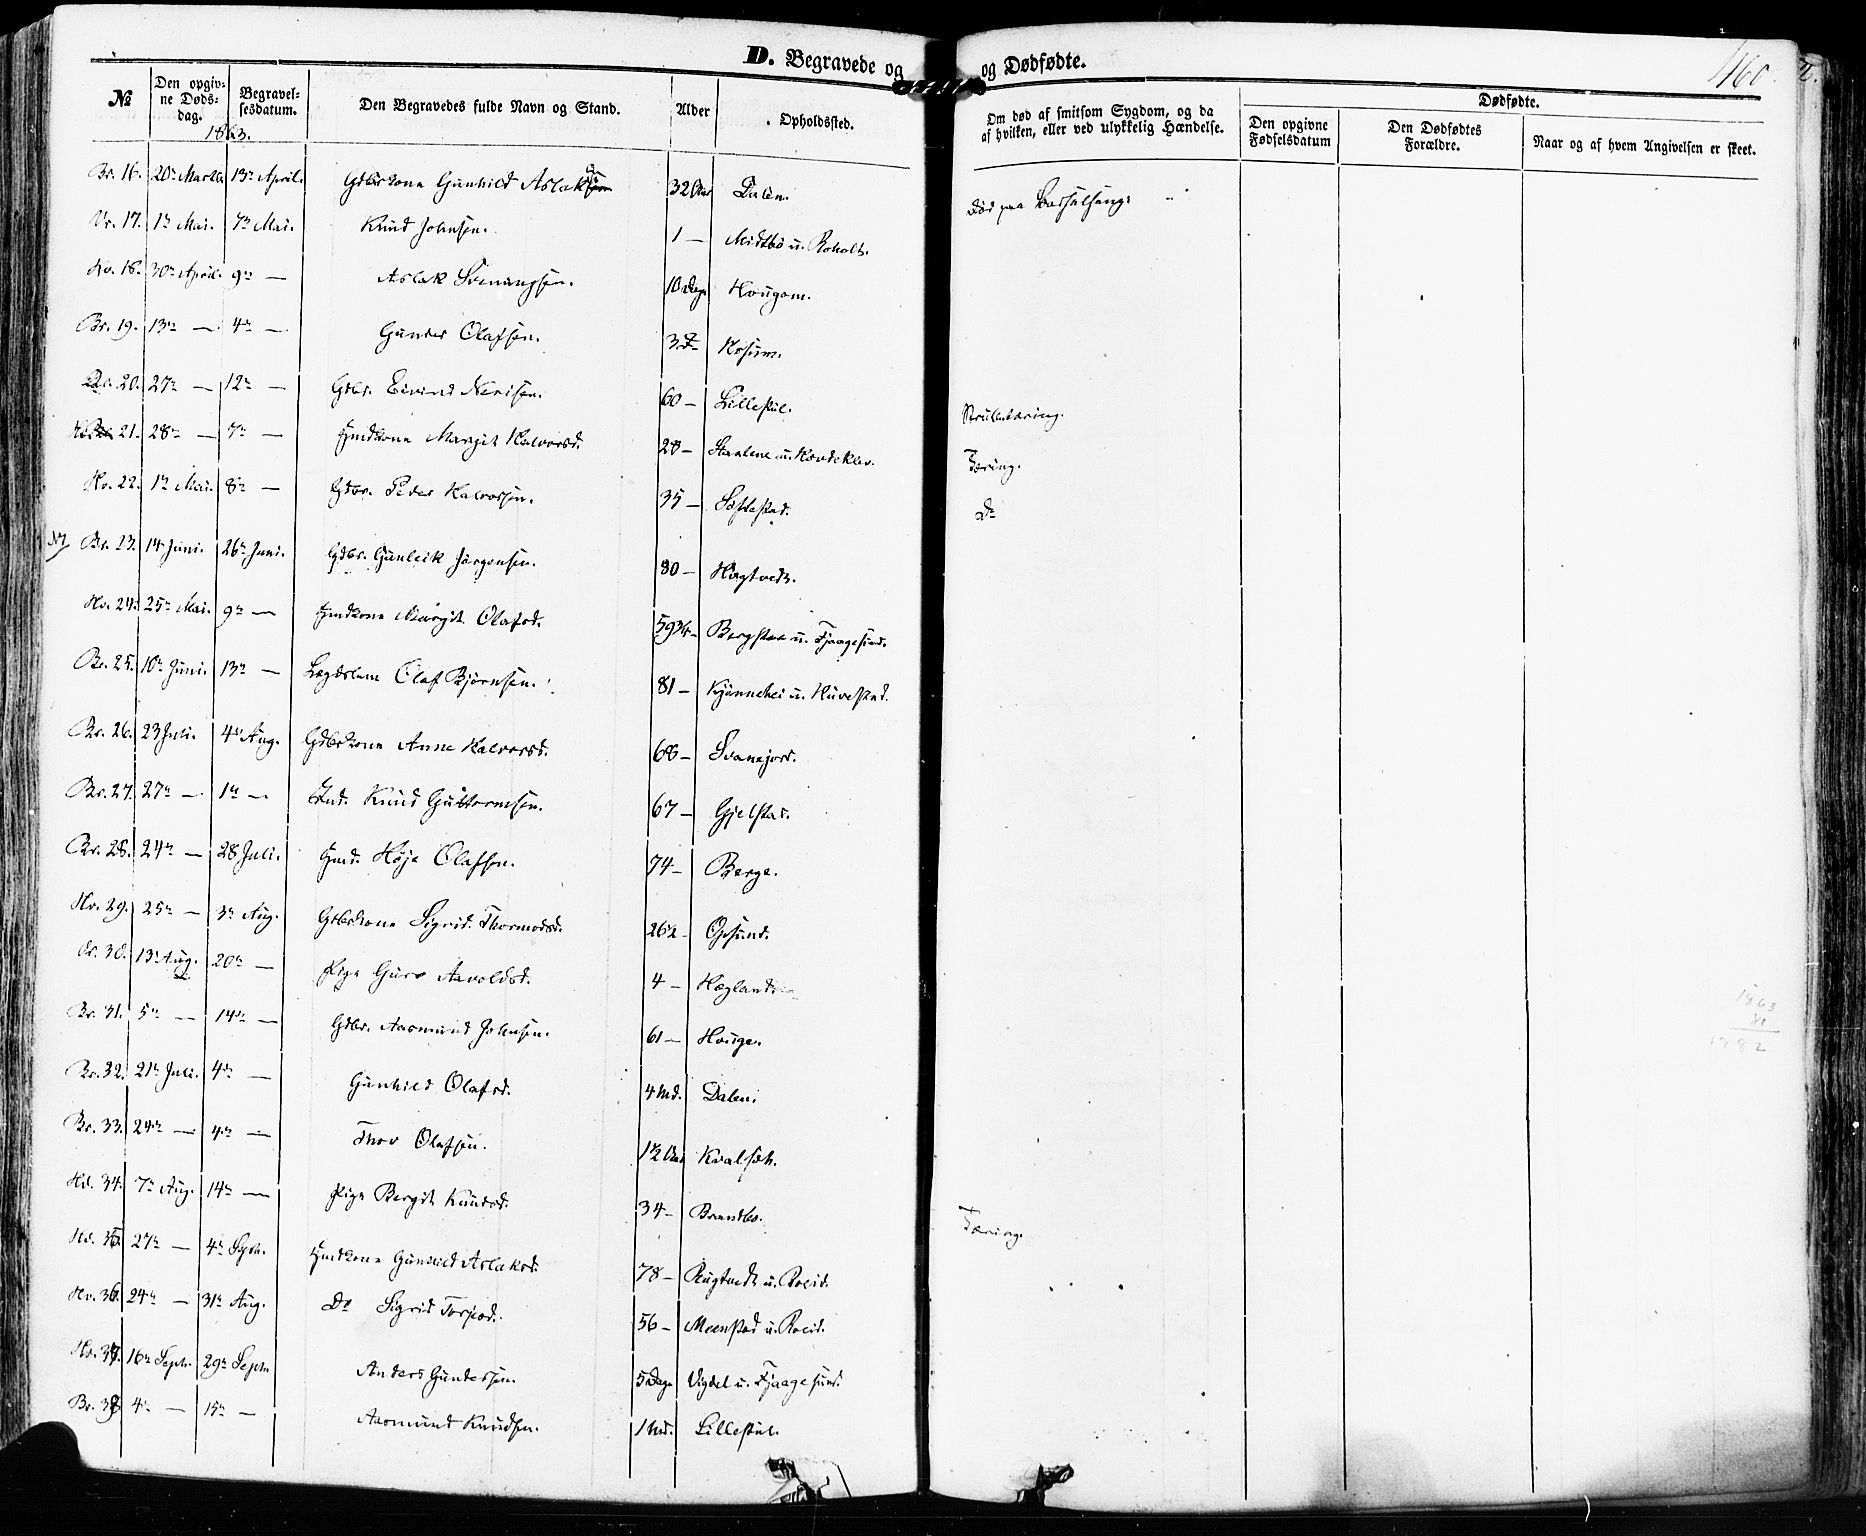 D. Begravede og og Dødfødte. 460
№ Den opgivne Dødsdag. Begravelsesdatum. Den Begravedes fulde Navn og Stand. Alder Opholdssted. Om død af smitsom Sygdom, og da af hvilken, eller ved ulykkelig Hændelse. Dødfødte.
Den opgivne Fødselsdatum Den Dødfødtes Forældre. Naar og af hvem Angivelsen er skeet.
1863.
Br. 16. 20n Marts 13n April. Gdbrkone Gunhild Aslaks 32 Aar Dalen. Død paa Barselseng.
17. 1n Mai. 7n Mai. Knud Johnsen. 1 — Midtbø u. Roholt.
Hv. 18. 30n April. 9n — Aslak Svenungsen. 10 Dage Hougom.
Br. 19. 13n — 4n — Gunder Olafsen. 3 D
20. 27n — 12n — Gdbr. Eivind Nerisen. 60 — Lillestul.
21. 28n — 7n — Hmdkone Margit Halvorsd. 28 — Tæring.
Hv. 22. 1n Mai. 8n — Gdbr. Peder Halvorsen. 35 — Softestad. Do
Br. 23. 14 Juni. 26n Juni. Gdbr. Gunleik Jørgensen. 80 — Hægtvedt.
Hv. 24. 25n Mai. 9n — Hmdkone Margit Olafsd. Bergstøe u. Fjaagesund.
Br. 25. 10n Juni. 13n — Lægdslem Olaf Bjørnsen. 81 — Kjønnehei u. Huvestad.
Br. 26. 23 Juli. 4n Aug. Gdbrkone Anne Halvorsd. 68 — Svanejord.
Br. 27. 27n — 1n — Ind. Knud Guttormsen. 67 — Gjelstad.
Br. 28. 24n — 28 Juli. Hmd. Høje Olafsen. 74 — Berge.
Hv. 29. 25n — 3n Aug. Gdbrkone Sigrid Thormodsd. 26½ — Opsund.
30. 13n Aug. 20n — Pige Guro Aavoldsd. 4 — Hægland
Br. 31. 5n — 14n — Gdbr. Aasmund Johnsen. 61 — Houge.
Br. 32. 21n Juli. 4n — Gunhild Olafsd. 4 Md. Dalen.
Br. 33. 24n — 4n — Thov Olafsen. 12 Kvalseth.
34. 7n Aug. 14n — Pige Bergit Knudsd. 34 — Brandbø. Tæring.
35. 27n — 4n Sept. Hmdkone Gunhild Aslaksd. 78 — Rugtvedt u. Roeid.
Hv. 36. 24n — 31n Aug. Do Sigrid Torjusd. 56 — Meenstad u. Roeid.
37. 16n Septr. 29n Septr. Anders Gundersen. 5 Dage Vigdel u. Fjaagesund.
Br. 38 4n — 15n — Aasmund Knudsen. 1 Md. Lillestul.
1863
1782